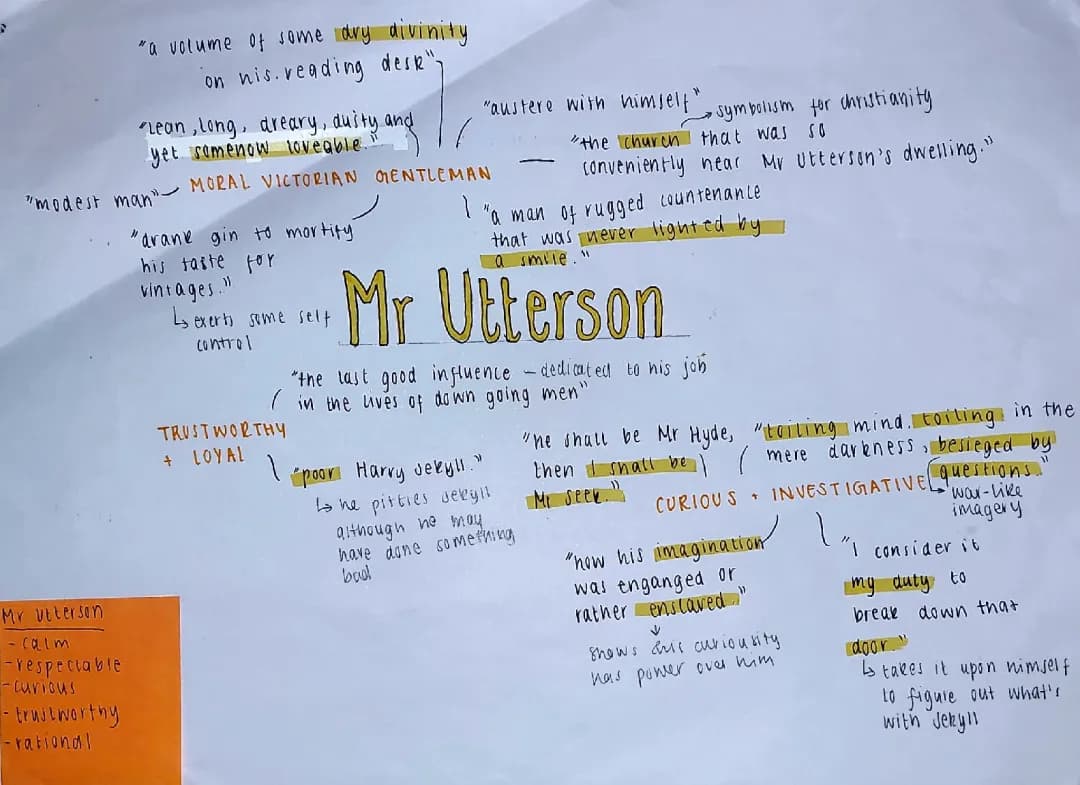 "a volume of some dry divinity
on his reading desk"
"lean, long, dreary, dusty and
yet somenow loveable."
"austere with himself"
symbolism for christianity
"the church that was so
conveniently near Mr Utterson's dwelling."
MORAL VICTORIAN GENTLEMAN
"modest man"
"drank gin to mortify
his taste for
vintages."
↳ exerts some self
control
"a man of rugged countenance
that was never lighted by
a smile."
Mr Utterson
"the last good influence – dedicated to his job
in the lives of down going men"
TRUSTWORTHY
+ LOYAL
"poor Harry Jekyll."
↳ he pitties Jekyll
although he may
have done something
bad
"he shall be Mr Hyde,
then I shall be
Mr seek."
"toiling mind, toiling in the
mere darkness, besieged by
questions."
↳ war-like
imagery
CURIOUS + INVESTIGATIVE
"how his imagination
was enganged or
rather enslaved."
shows this curiousity
has power over him
"I consider it
my duty to
break down that
door"
↳ takes it upon himself
to figure out what's
with Jekyll
Mr Utterson
- calm
- respectable
- curious
- trustworthy
- rational